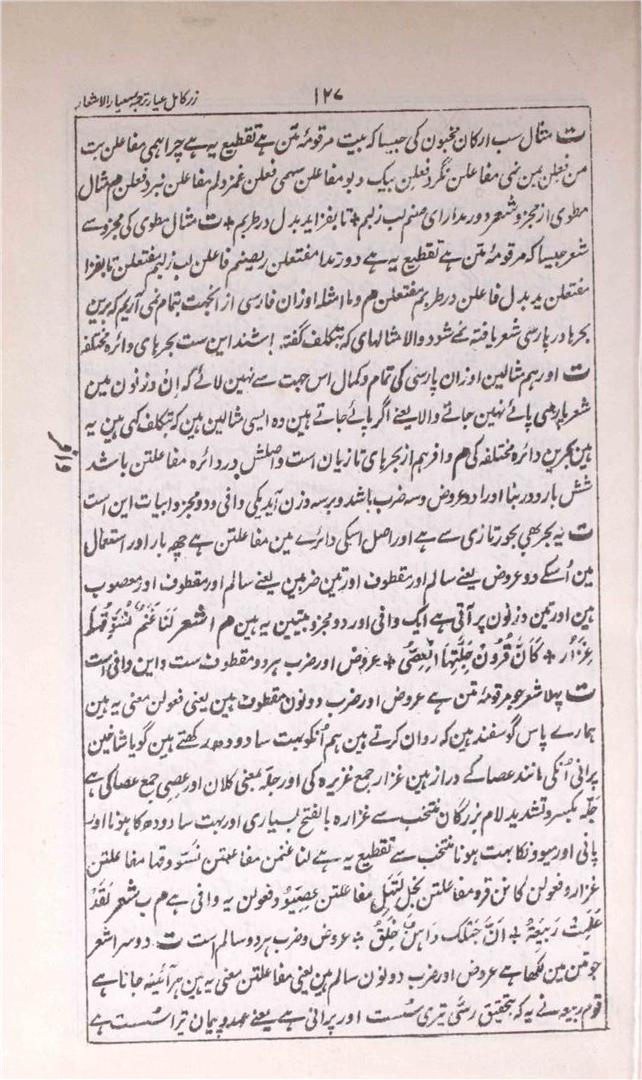 زر کامل عیار ترجمۂ معیار الاشعار
۱۲۷
ت مثال سب ارکان مخبون کی جیسا کہ بیت مرقومۂ متن ہے تقطیع یہ ہے چرا ہمی مفاعلن بت
من فعلن بمن نمی مفاعلن نگرد فعلن بیک دو مفاعلن سہمی فعلن غمزدلم مفاعلن نبرد فعلن هم مثال
مطوی از مجزو شعر دور مدار ای صنم لب زلبم + تا بفزاید بدل در طربم + ت مثال مطوی کی مجزو سے
شعر جیسا کہ مرقومۂ متن ہے تقطیع یہ ہے دور مدا مفتعلن ریصنم فاعلن لب زلبم مفتعلن تا بفزا
مفتعلن ید بدل فاعلن در طربم مفتعلن هم و ما امثلہ اوزان فارسی از انجہت بتمام نمی آریم کہ برین
بحرہا در پارسی شعر یافتہ نمے شود والا مثالہای کہ بتکلف گفتہ باشند این ست بحرہای دائرہ مختلفہ
ت اور ہم مثالین اوزان پارسی کی تمام و کمال اس جہت سے نہین لائے کہ ان وزنون مین
شعر پارسی پائے نہین جاتے والا یعنے اگر پائے جاتے ہین وہ ایسی مثالین ہین کہ بتکلف کہی ہین یہ
ہین بحرین دائرہ مختلفہ کی هم وافر هم از بحرہای تازیان است و اصلش در دائرہ مفاعلتن باشد
وافر
شش بار و در بنا اورا دو عروض و سہ ضرب باشد و بر سہ وزن آید یکی وافی و دو مجزو ابیات این است
ت یہ بحر بھی بحور تازی سے ہے اور اصل اسکی دائرے مین مفاعلتن ہے چھ بار اور استعمال
مین اُسکے دو عروض یعنے سالم اور مقطوف اور تین ضربین یعنے سالم اور مقطوف اور معصوب
ہین اور تین وزنون پر آتی ہے ایک وافی اور دو مجزو بیتین یہ ہین هم ا شعر لَنَا غَنَمٌ نُسَوِّقُهَا
غِزَارٌ + كَأَنَّ قُرُونَ جِلَّتِهَا الْعِصِيُّ + عروض اور ضرب ہر دو مقطوف ست و این وافی است
ت پہلا شعر جو مرقومۂ متن ہے عروض اور ضرب دونون مقطوف ہین یعنی فعولن معنی یہ ہین
ہمارے پاس گوسفند ہین کہ روان کرتے ہین ہم اُنکو بہت سا دودھ رکھتے ہین گویا شاخین
پرانی اُنکی مانند عصا کے دراز ہین غزار جمع غزیرہ کی اور جلہ بمعنی کلان اور عصی جمع عصا کی ہے
جلہ بکسر و تشدید لام بزرگان منتخب سے غزارہ بالفتح بسیاری اور بہت سا دودھ کا ہونا اور
پانی اور میوونکا بہت ہونا منتخب سے تقطیع یہ ہے لنا غنمن مفاعلتن نسوّوقہا مفاعلتن
غزارو فعولن کانن قرو مفاعلتن نجل لتہل مفاعلتن عصییو فعولن یہ وافی ہے هم ب شعر لَقَدْ
عَلِمَتْ رَبِيعَةُ أَنَّ حَبْلَكَ وَاهِنٌ خَلَقُ : عروض و ضرب ہر دو سالم است ت دوسرا شعر
جو متن مین لکھا ہے عروض اور ضرب دونون سالم ہین یعنی مفاعلتن معنی یہ ہین ہر آئینہ جانا ہے
قوم ربیعہ نے یہ کہ بتحقیق رسّی تیری سُست اور پرانی ہے یعنے عہد و پیمان تیرا سُست ہے